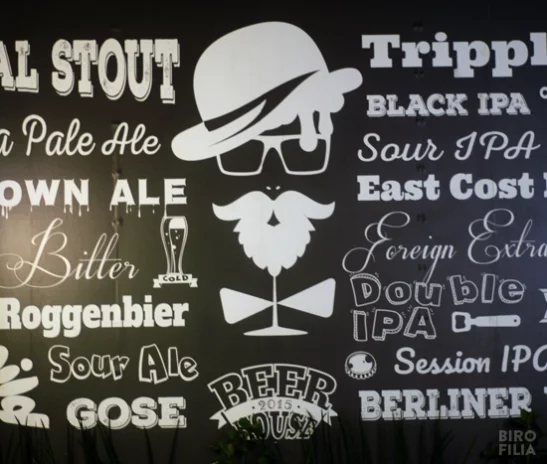 AL STOUT
a Pale Ale
OWN ALE
Bitter
COLD
Roggenbier
Sour Ale
GOSE
BEER
2015
HOUSE
Trippl
BLACK IPA
Sour IPA
East Cost
Foreign Extra
Double
IPA
Session IPA
BERLINER
BIRO
FILIA